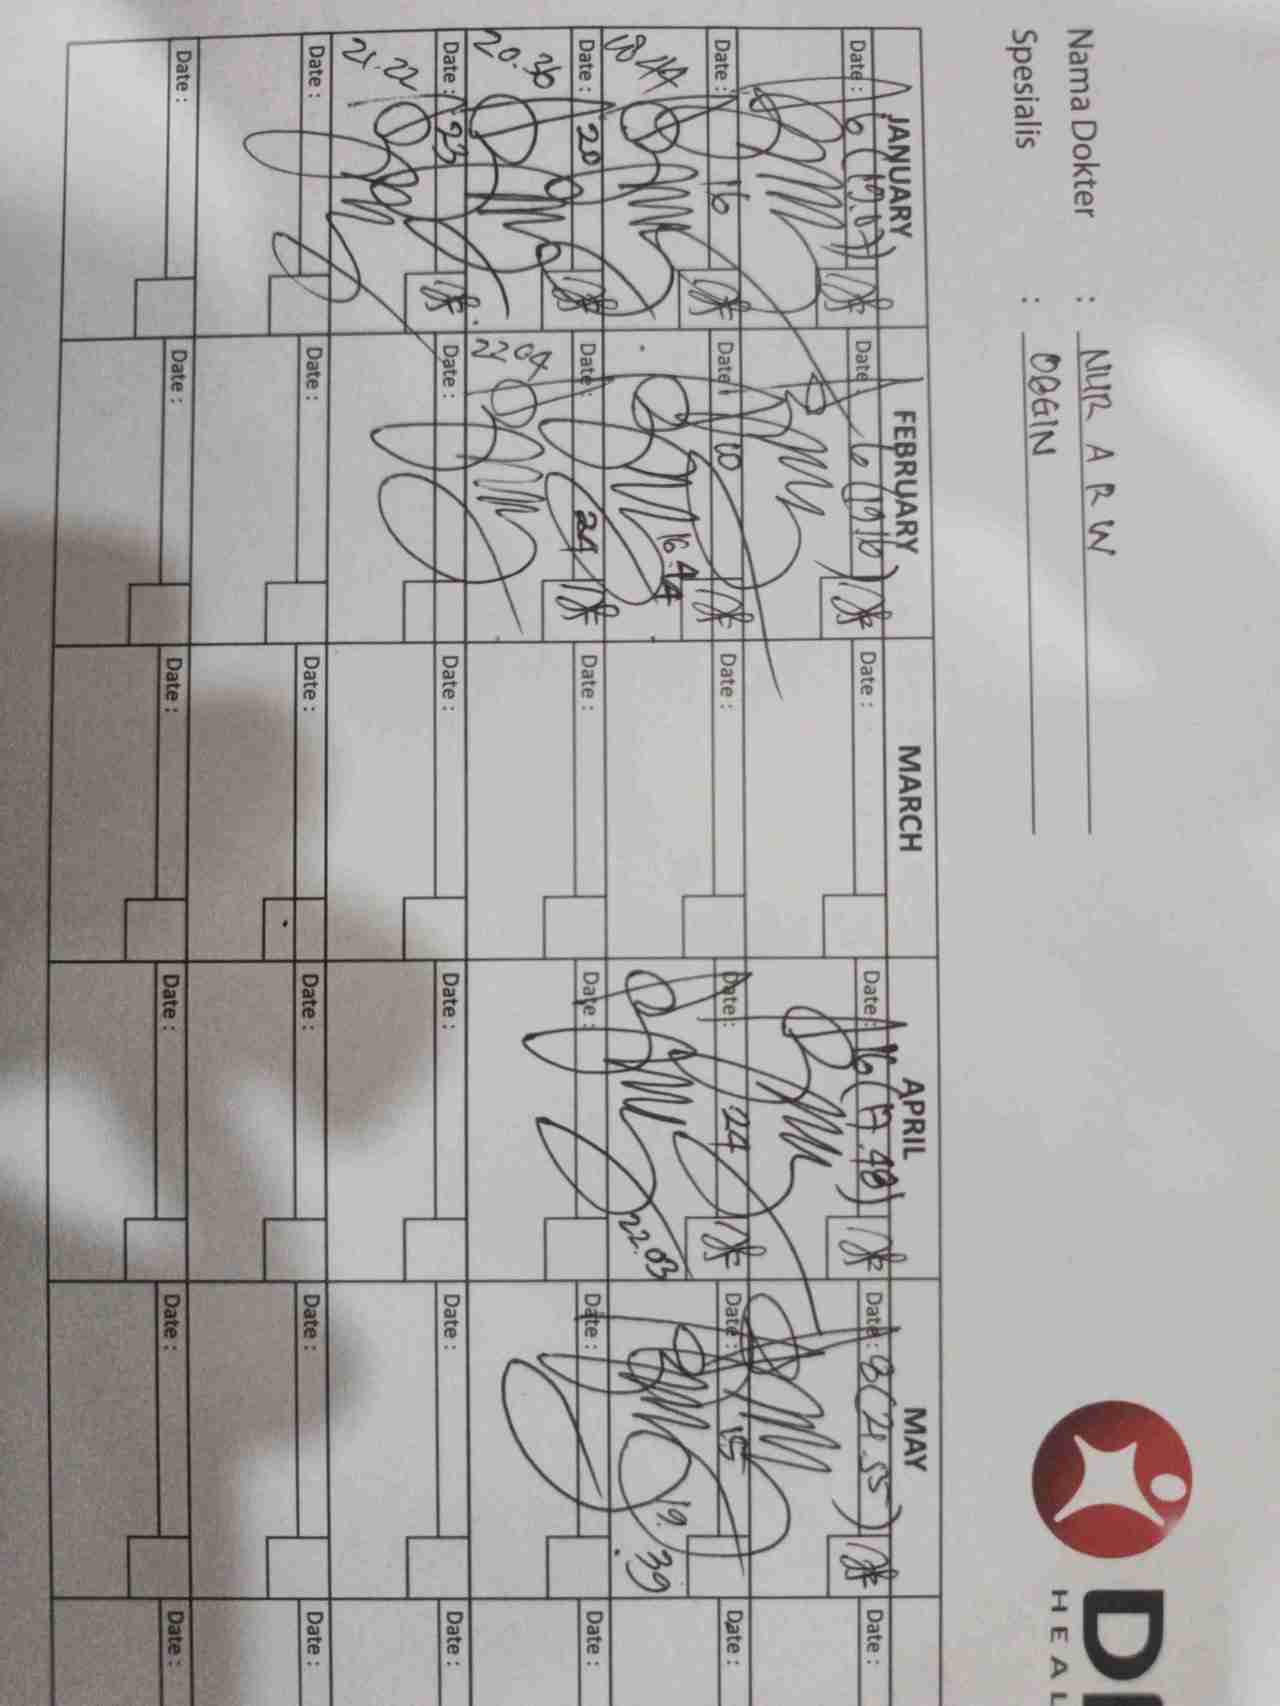 Nama Dokter : NUR A R W
Spesialis : OBGIN
HEAL
JANUARY FEBRUARY MARCH APRIL MAY
Date : 6 (19.07) Date : 6 (19.16) Date : Date : 16 (17.48) Date : 8 (21.55) Date :
Date : 16 Date : 10 Date : Date : 24 Date : 15 Date :
18.44 16.44 22.03 19.39
Date : 20 Date : 24 Date : Date : Date : Date :
20.30 22.04
Date : 23 Date : Date : Date : Date : Date :
21.22
Date : Date : Date : Date : Date : Date :
Date : Date : Date : Date : Date : Date :